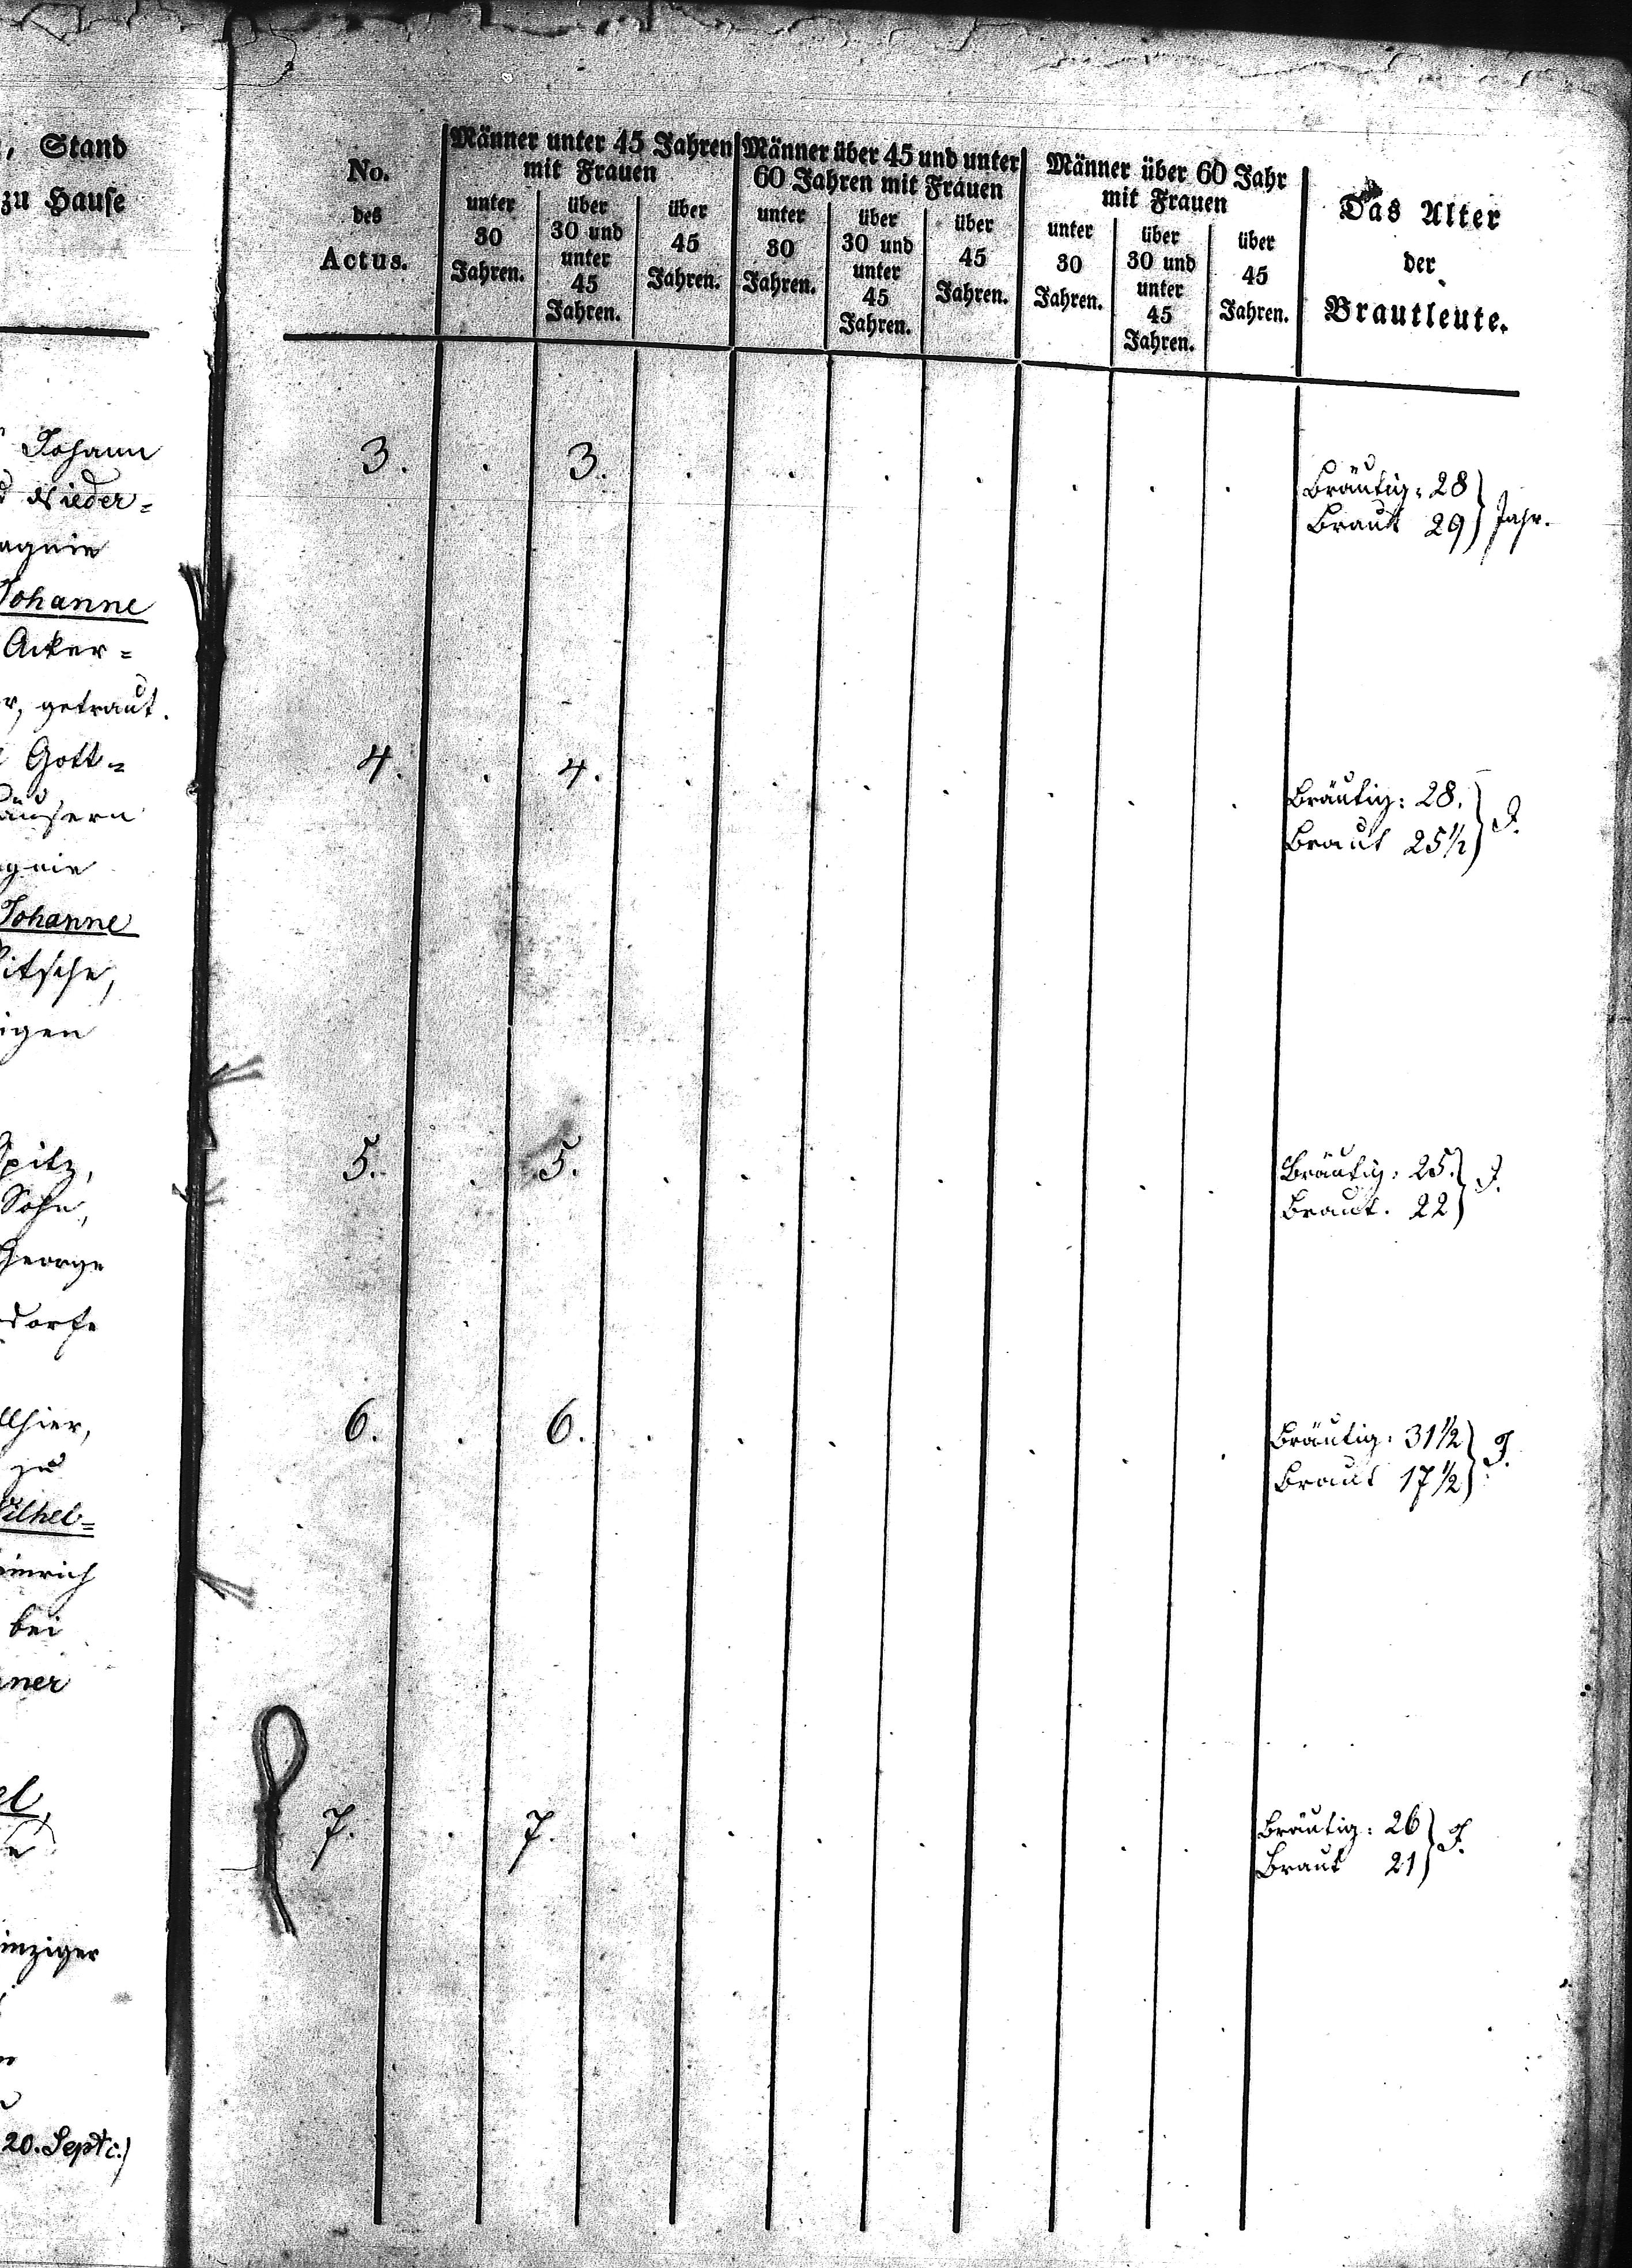 Stand
zu Hause
Johann
Nieder=
Johanne
Acker=
getraut.
Gott=
Johanne
Spitz,
Sohn,
George
dorfe
zu
Wilhel=
bei
einziger
20. Septc:)
No.
des
Actus.
Männer unter 45 Jahren
mit Frauen
unter
30
Jahren.
über
30 und
unter
45
Jahren.
über
45
Jahren.
Männer über 45 und unter
60 Jahren mit Frauen
unter
30
Jahren.
über
30 und
unter
45
Jahren.
über
45
Jahren.
Männer über 60 Jahr
mit Frauen
unter
30
Jahren.
über
30 und
unter
45
Jahren.
über
45
Jahren.
Das Alter
der
Brautleute.
3. . 3. . . . . . . .
Bräutig: 28
Braut 29 } Jahr.
4. . 4. . . . . . . .
Bräutig: 28.
Braut 25½ } J.
5. . 5. . . . . . . .
Bräutig: 25.
Braut. 22 } J.
6. . 6. . . . . . . .
Bräutig: 31½
Braut 17½ } J.
7. . 7. . . . . . . .
Bräutig: 26
Braut 21 } J.